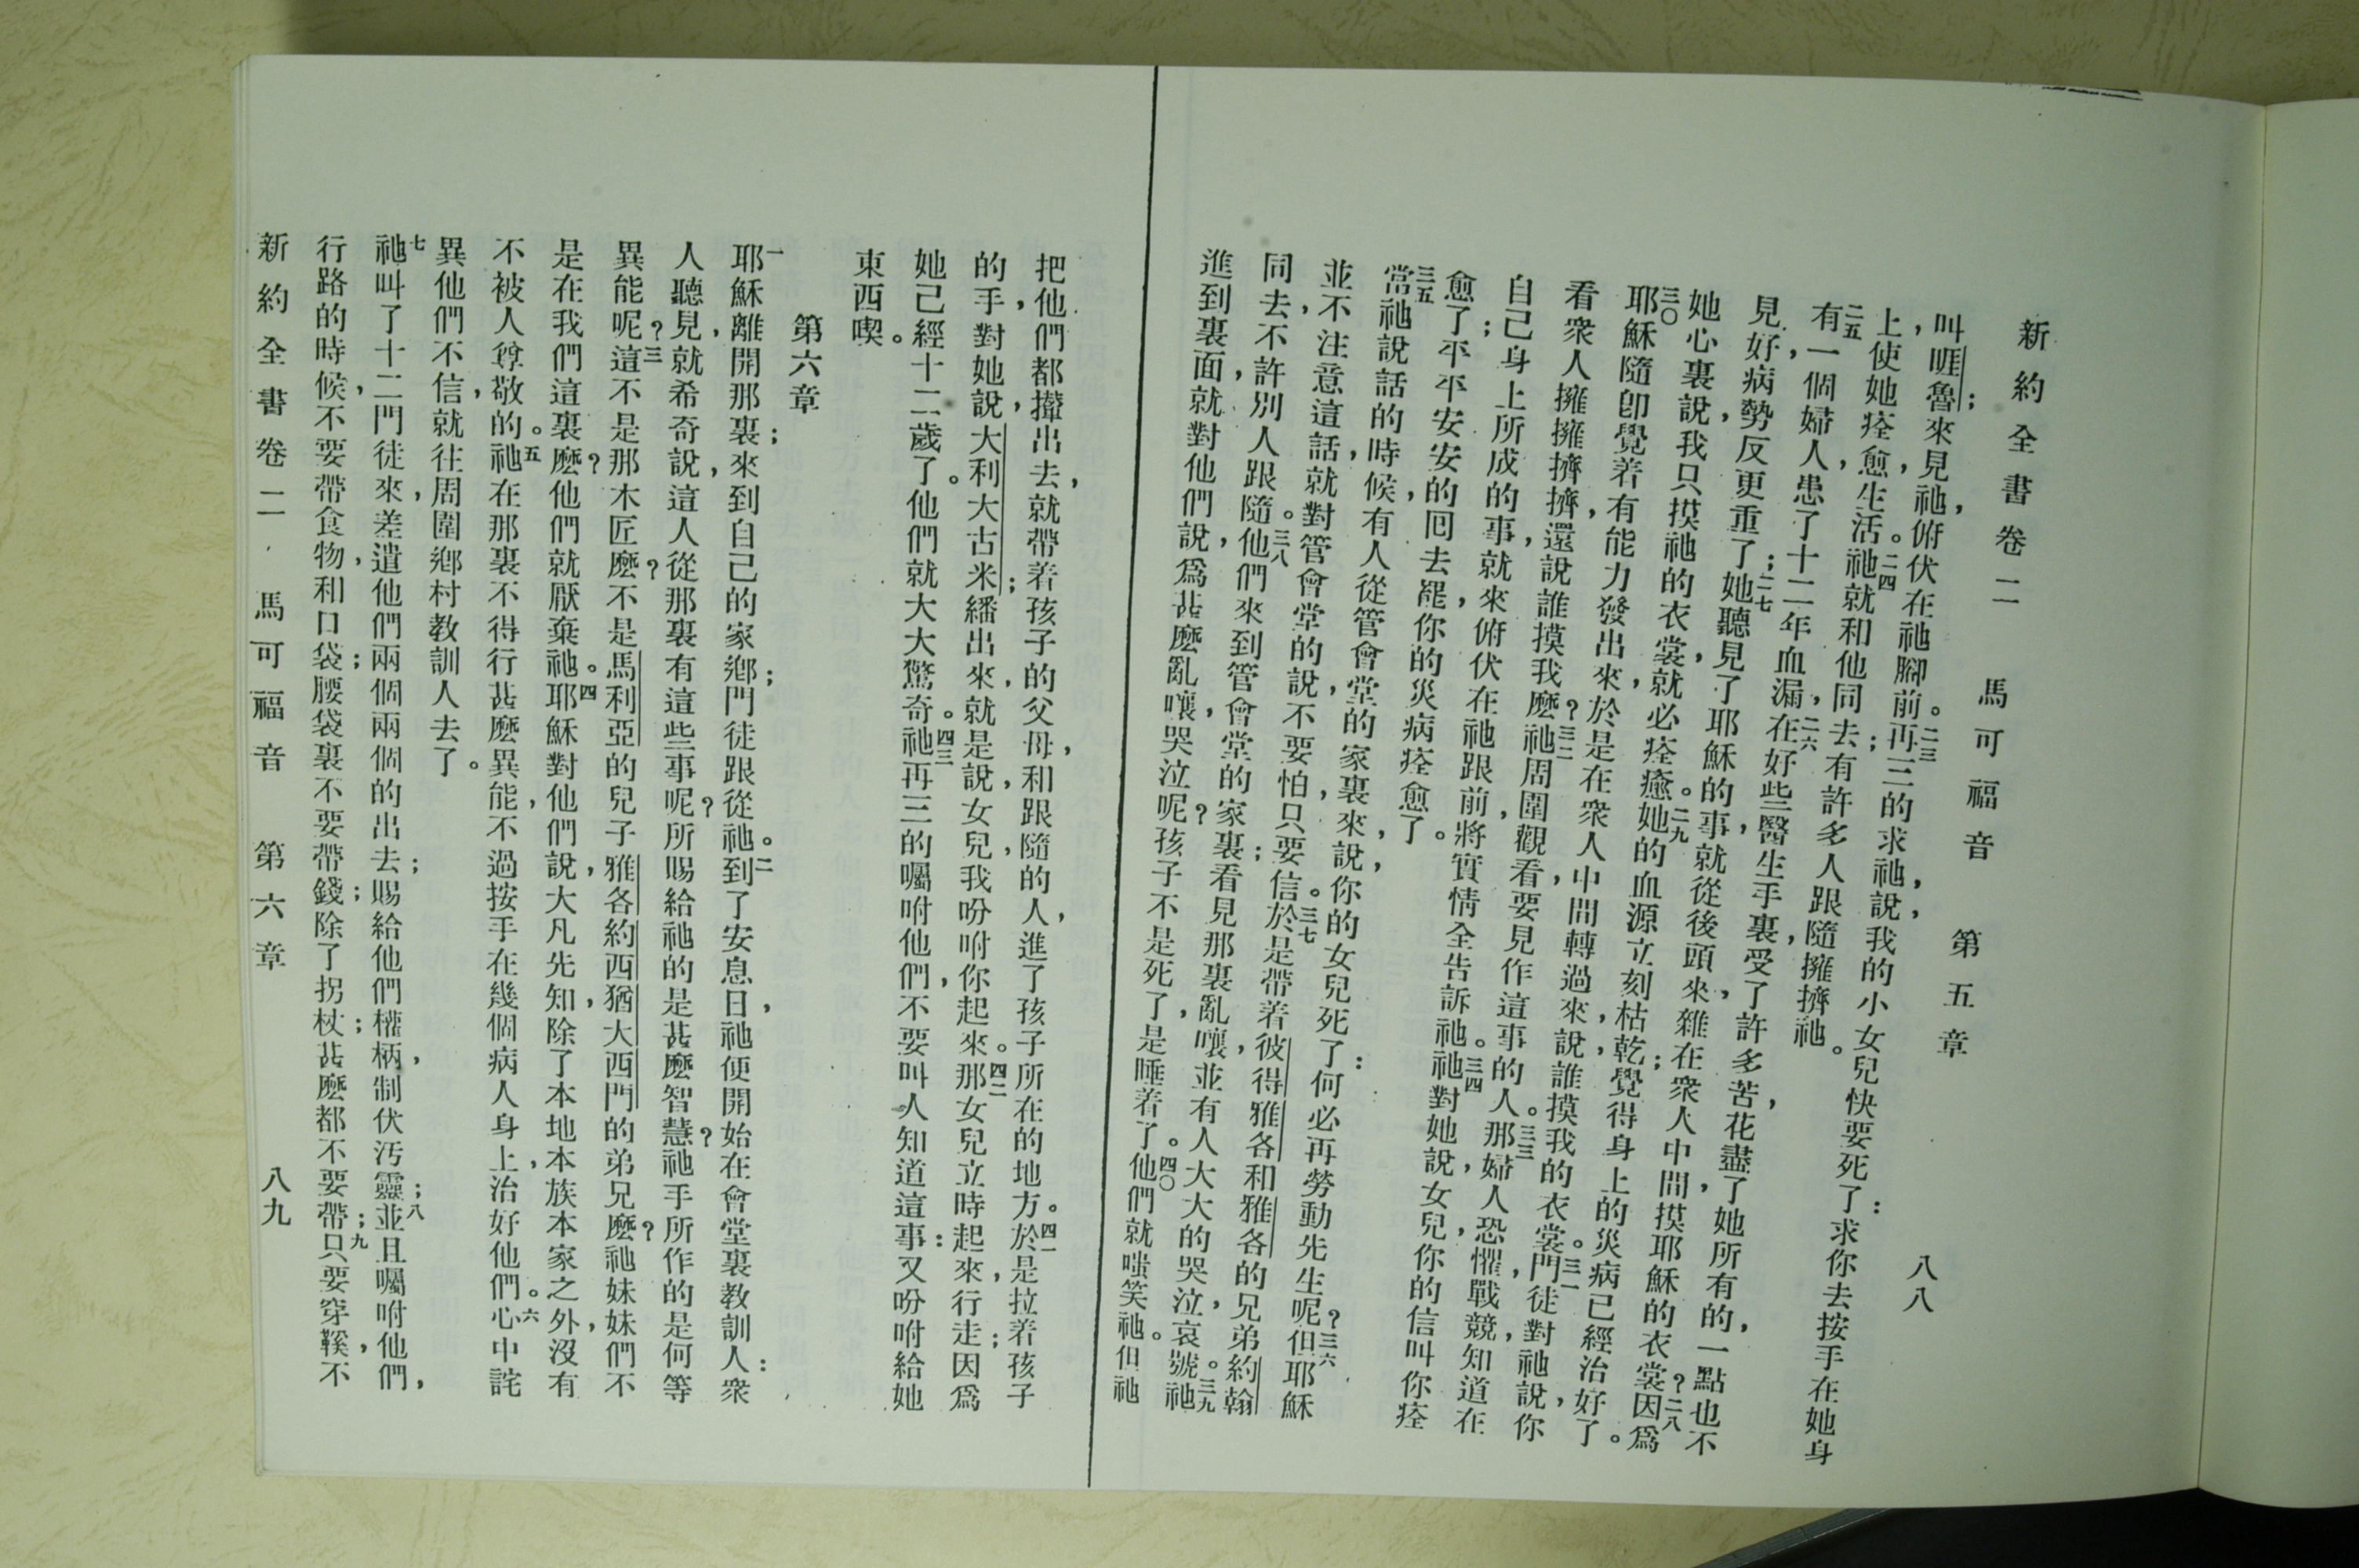 新約全書卷二 馬可福音 第五章 八八
叫睚魯；來見祂，俯伏在祂腳前。二三再三的求祂，說，我的小女兒快要死了：求你去按手在她身
上，使她痊愈，生活。二四祂就和他同去；有許多人跟隨擁擠祂。
二五有一個婦人，患了十二年血漏，二六在好些醫生手裏，受了許多苦，花盡了她所有的，一點也不
見好，病勢反更重了；二七她聽見了耶穌的事，就從後頭來，雜在衆人中間，摸耶穌的衣裳？二八因爲
她心裏說，我只摸祂的衣裳，就必痊癒。二九她的血源立刻枯乾；覺得身上的災病已經治好了。
三〇耶穌隨卽覺着有能力發出來，於是在衆人中間轉過來，說，誰摸我的衣裳。三一門徒對祂說，你
看衆人擁擁擠擠，還說誰摸我麼？三二祂周圍觀看，要見作這事的人。三三那婦人恐懼戰競，知道在
自己身上所成的事，就來俯伏在祂跟前，將實情全告訴祂。三四祂對她說，女兒，你的信叫你痊
愈了；平平安安的囘去罷，你的災病痊愈了。
三五當祂說話的時候，有人從管會堂的家裏來，說，你的女兒死了：何必再勞動先生呢？三六但耶穌
並不注意這話，就對管會堂的說，不要怕，只要信。三七於是帶着彼得雅各和雅各的兄弟約翰
同去，不許別人跟隨。三八他們來到管會堂的家裏；看見那裏亂嚷，並有人大大的哭泣，哀號。三九祂
進到裏面，就對他們說，爲甚麼亂嚷，哭泣呢？孩子不是死了，是睡着了。四〇他們就嗤笑祂。但祂
把他們都攆出去，就帶着孩子的父母，和跟隨的人，進了孩子所在的地方。四一於是拉着孩子
的手，對她說，大利大古米；繙出來，就是說，女兒，我吩咐你起來。四二那女兒立時起來，行走；因爲
她已經十二歲了。他們就大大驚奇。四三祂再三的囑咐他們，不要叫人知道這事：又吩咐給她
東西喫。
第六章
一耶穌離開那裏；來到自己的家鄉；門徒跟從祂。二到了安息日，祂便開始在會堂裏教訓人：衆
人聽見，就希奇說，這人從那裏有這些事呢？所賜給祂的是甚麼智慧？祂手所作的是何等
異能呢？三這不是那木匠麼？不是馬利亞的兒子，雅各約西猶大西門的弟兄麼？祂妹妹們不
是在我們這裏麼？他們就厭棄祂。四耶穌對他們說，大凡先知，除了本地本族本家之外，沒有
不被人尊敬的。五祂在那裏不得行甚麼異能，不過按手在幾個病人身上，治好他們。六心中詫
異他們不信，就往周圍鄉村教訓人去了。
七祂叫了十二門徒來，差遣他們兩個兩個的出去；賜給他們權柄，制伏汚靈；八並且囑咐他們，
行路的時候，不要帶食物，和口袋；腰袋裏不要帶錢；除了拐杖；甚麼都不要帶；九只要穿鞵，不
新約全書卷二 馬可福音 第六章 八九